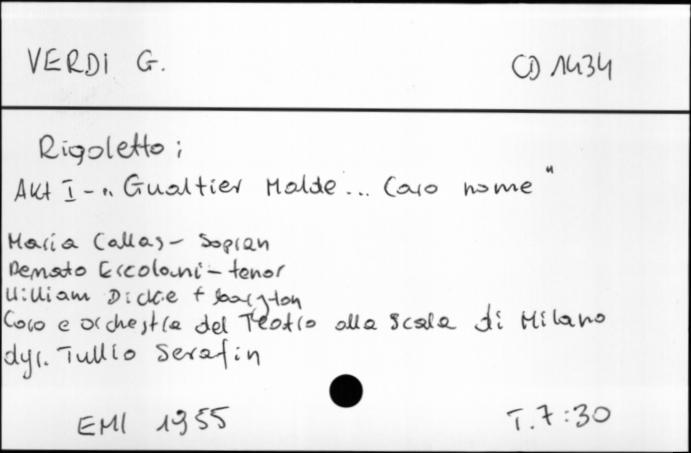 VERDI G. CD 1434
Rigoletto;
Akt I - „Gualtier Malde... Caro nome"
Maria Callas - Sopran
Renato Ercolani - tenor
William Dickie + baryton
Coro e orchestra del Teatro alla Scala di Milano
dyr. Tullio Serafin
EMI 1955 T. 7:30